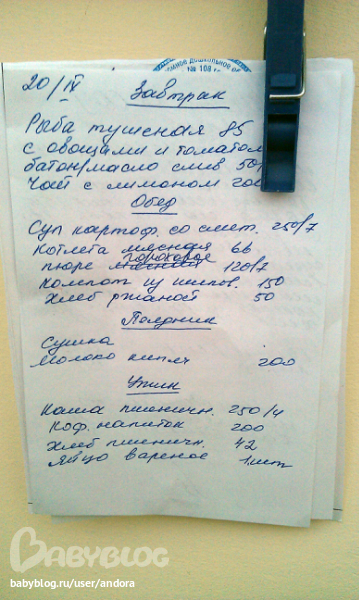 20/IV
Завтрак
Рыба тушеная 85
с овощами и томатом
батон/масло слив 50/
Чай с лимоном 200
Обед
Суп картоф. со смет. 250/7
Котлета мясная 66
гороховое
пюре 120/7
Компот из шипов. 150
Хлеб ржаной 50
Полдник
Сушка
Молоко кипяч 200
Ужин
Каша пшеничн. 250/4
Коф. напиток 200
Хлеб пшеничн. 42
Яйцо вареное 1 шт
№ 108
BABYBLOG
babyblog.ru/user/andora